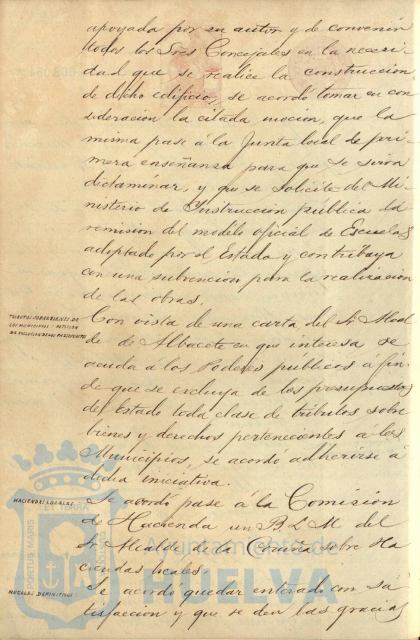 apoyada por su autor y de convenir
todos los Sres Concejales en la necesi-
dad que se realice la construccion
de dicho edificio, se acordó tomar en con
sideracion la citada mocion, que la
misma pase á la Junta local de pri-
mera enseñanza para que se sirva
dictaminar, y que se solicite del Mi-
nisterio de Instruccion pública la
remision del modelo oficial de Escuelas
adoptado por el Estado y contribuya
con una subvencion para la realizacion
de las obras.
Con vista de una carta del Sr Alcal
de de Albacete en que interesa se
acuda á los Poderes públicos á fin
de que se excluya de los presupuestos
del Estado toda clase de tributos sobre
bienes y derechos pertenecientes á los
Municipios, se acordó adherirse á
dicha iniciativa.
HACIENDAS LOCALES
Se acordó pase á la Comision
de Hacienda un B. L. M. del
Sr Alcalde de la Coruña sobre Ha
ciendas locales.
Se acordó quedar enterado con sa
tisfaccion y que se den las gracias
PORTUS MARIS ET TERRAE
Ayuntamiento de
HUELVA